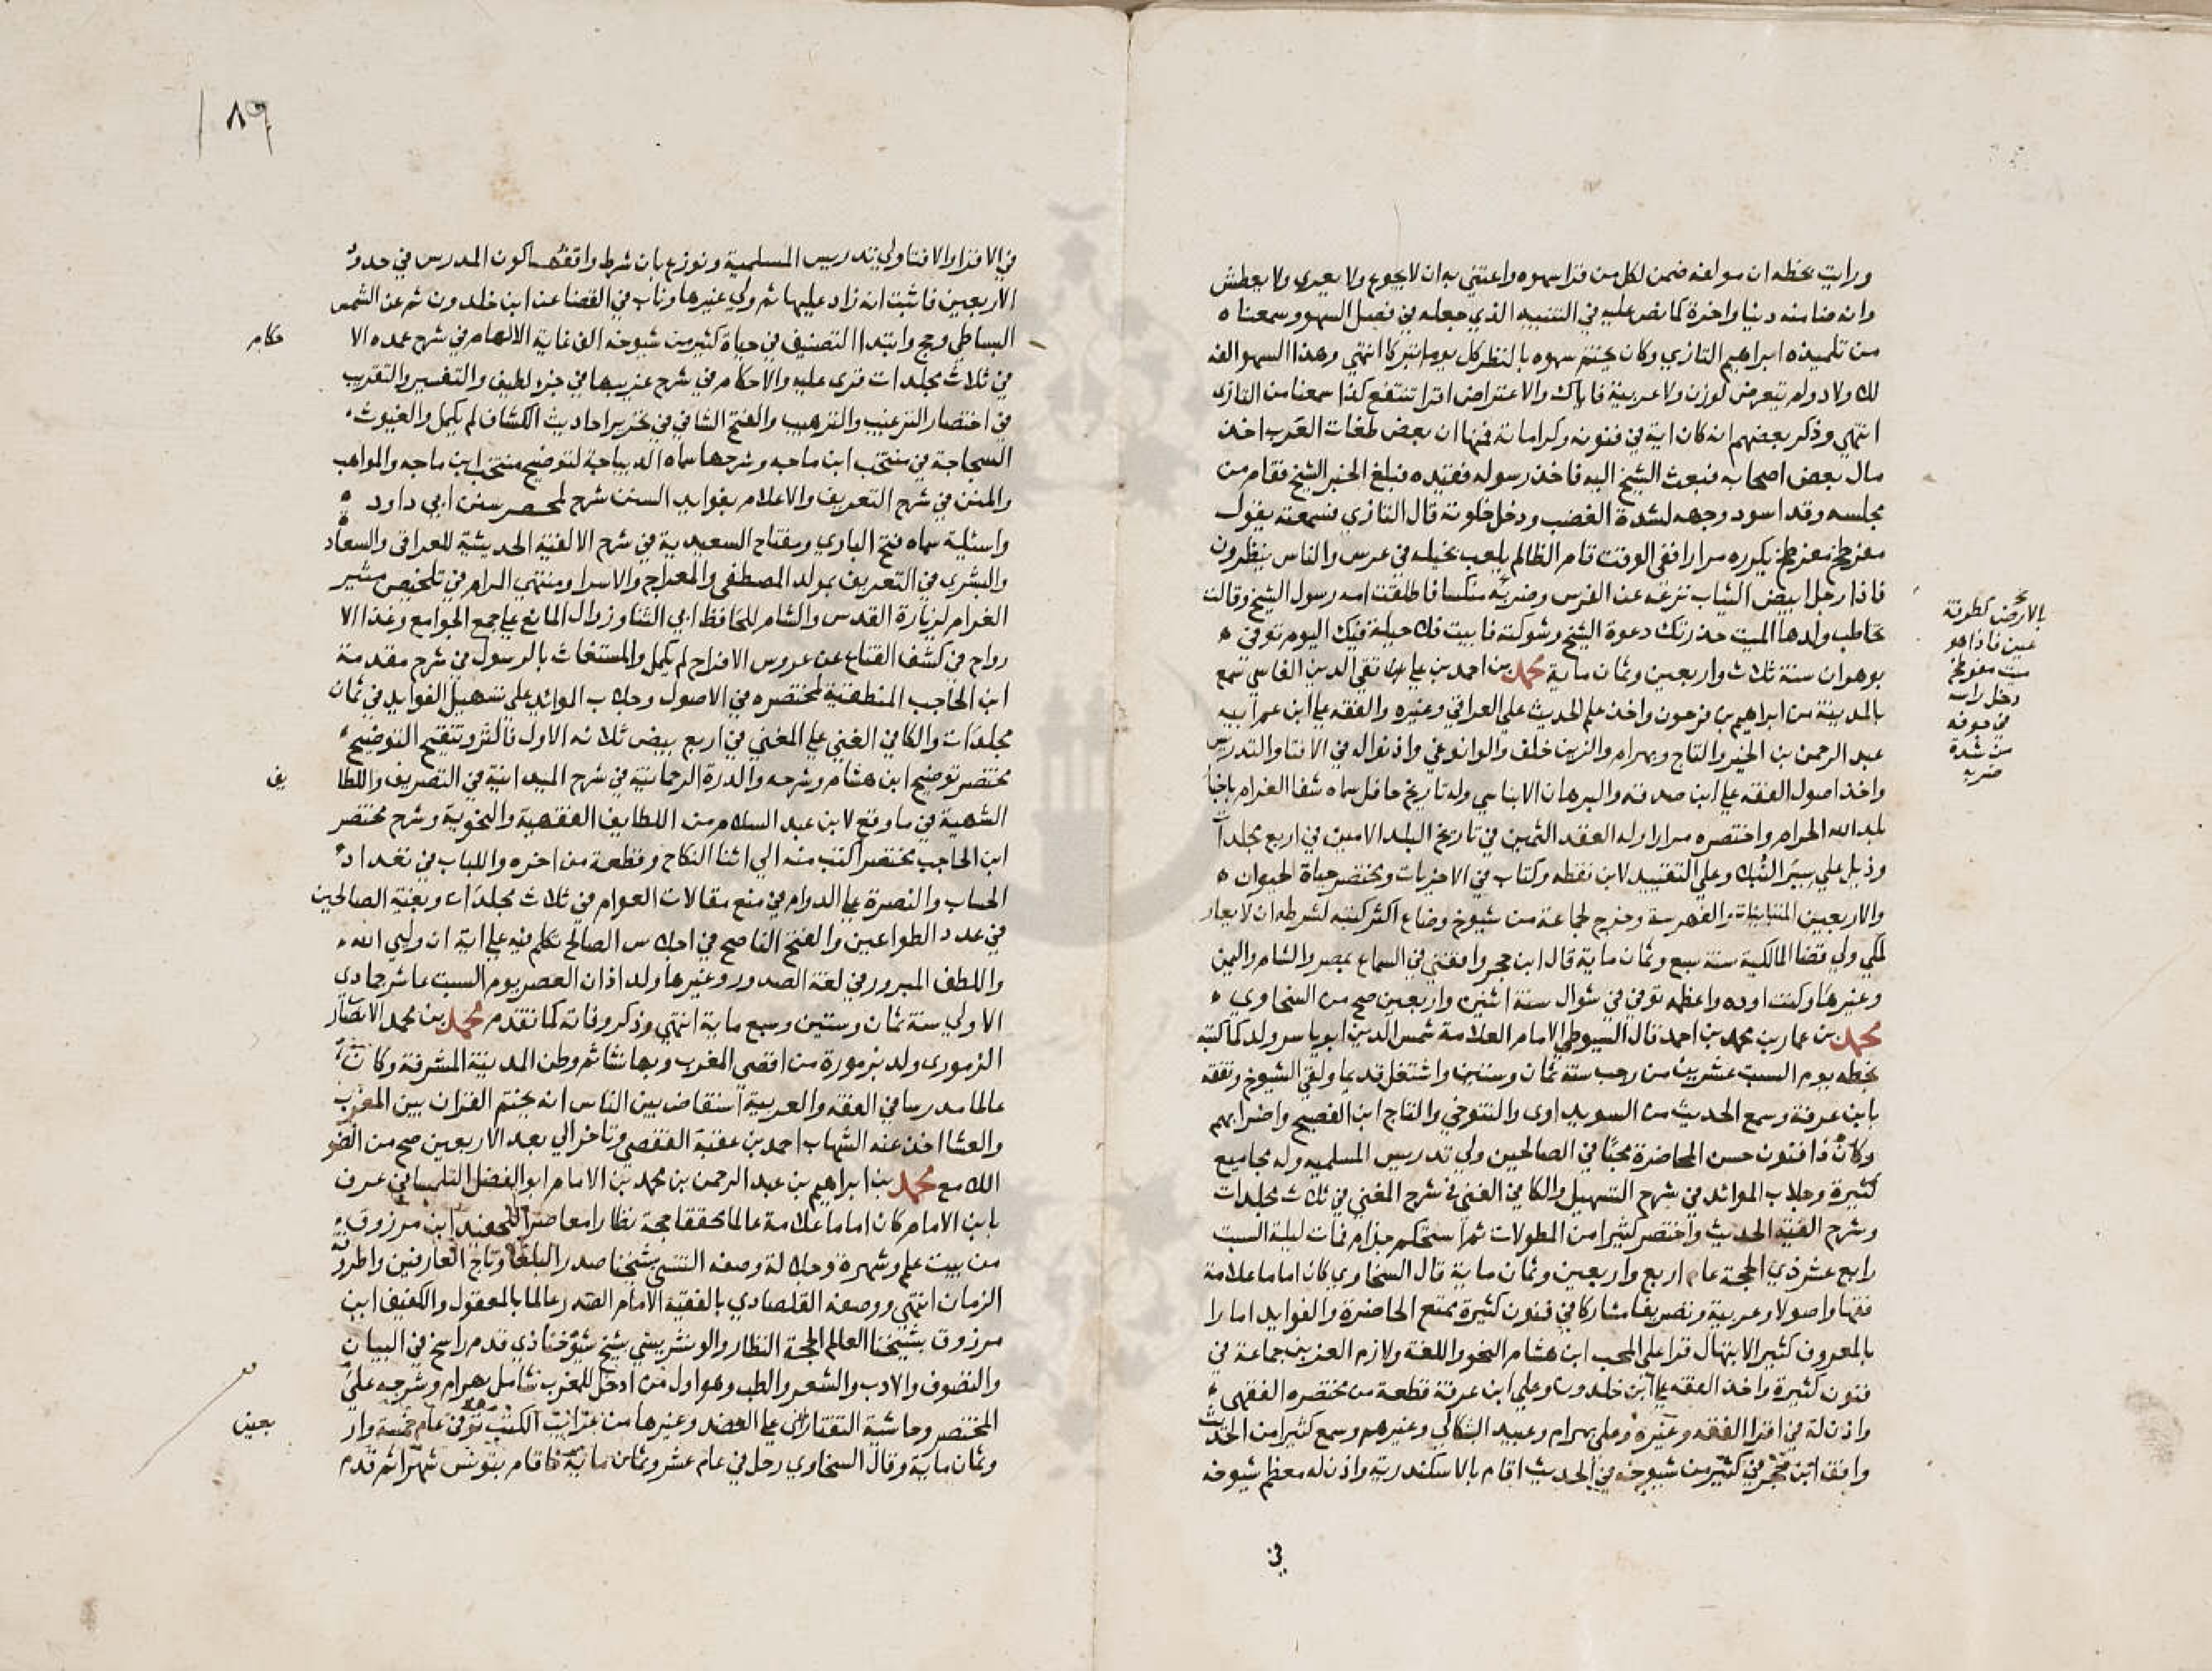 ورايت بخطه ان مولفه ضمن لكل من قرا سهوه واعتني به ان لا يجوع ولا يعري ولا يعطش
وانه ضامنه دنيا واخرة كما نص عليه في التنبيه الذي جعله في فضل السهو وسمعناه
من تلميذه ابراهيم التازي وكان يختم سهوه بالنظر كل يوم تبركا انتهي وهذا السهو الفه
للاولاد ولم يتعرض لوزن ولا عربية فاياك والاعتراض اقرا تنتفع كذا سمعنا من التازي
انتهي وذكر بعضهم انه كان اية في فنونه وكراماته فمنها ان بعض طغات العرب اخذ
مال بعض اصحابه فبعث الشيخ اليه فاخذ رسوله فقيده فبلغ الخبر الشيخ فقام من
مجلسه وقد اسود وجهه لشدة الغضب ودخل خلوته قال التازي فسمعته يقول
مفرطخ مفرطخ يكرره مرارا ففي الوقت قام الظالم يلعب بخيله في عرس والناس ينظرون
فاذا رجل ابيض الثياب نزعه عن الفرس وضربه منكسا فاطلقت امه رسول الشيخ وقالت
تخاطب ولدها الميت حذرتك دعوة الشيخ وشوكته فابيت فلا حيلة فيك اليوم توفي
بوهران سنة ثلاث واربعين وثمان ماية محمد بن احمد بن علي تقي الدين الفاسي سمع
بالمدينة من ابراهيم بن فرحون واخذ علم الحديث علي العراقي وغيره والفقه علي ابن عم ابيه
عبد الرحمن بن الخير والتاج وبهرام والزين خلف والوانوغي واذنوا له في الافتا والتدريس
واخذ اصول الفقه علي ابن صدقة والبرهان الابناسي وله تاريخ حافل سماه شفا الغرام باخبار
بلد الله الحرام واختصره مرارا وله العقد الثمين في تاريخ البلد الامين في اربع مجلدات
وذيل علي سير النبلا وعلي التقييد لابن نقطه وكتاب في الاخريات ومختصر حياة الحيوان
والاربعين المتباينات والفهرسة وخرج لجماعة من شيوخ وضاع اكثر كتبه لشرطه ان لا يعار
لمكي ولي قضا المالكية سنة سبع وثمان ماية قال ابن حجر وافقني في السماع بمصر والشام واليمن
وغيرها وكنت اوده واعظمه توفي في شوال سنة اثنين واربعين صح من السخاوي
محمد بن عمار بن محمد بن احمد قال السيوطي الامام العلامة شمس الدين ابو ياسر ولد كما كتبه
بخطه يوم السبت عشرين من رجب سنة ثمان وستين واشتغل قديما ولقي الشيوخ وتفقه
بابن عرفة وسمع الحديث من السويداوي والتنوخي والتاج ابن الفصيح واضرابهم
وكان ذا فنون حسن المحاضرة محبا في الصالحين ولي تدريس المسلميه وله مجاميع
كثيرة وجلاب الموائد في شرح التسهيل والكافي الغني في شرح المغني في ثلاث مجلدات
وشرح الفية الحديث واختصر كثيرا من المطولات ثم استحكم جذام فمات ليلة السبت
رابع عشر ذي الحجة عام اربع واربعين وثمان ماية قال السخاوي كان اماما علامة
فقها واصولا وعربية وتصريفا مشاركا في فنون كثيرة ممتع المحاضرة والفوايد امارا
بالمعروف كثير الابتهال قرا علي المحب ابن هشام النحو واللغة ولازم العز بن جماعة في
فنون كثيرة واخذ الفقه علي ابن خلدون وعلي ابن عرفة قطعة من مختصره الفقهي
واذن له في اقرا الفقه وغيره وعلي بهرام وعبيد البشكالي وغيرهم وسمع كثيرا من الحديث
وافق ابن حجر في كثير من شيوخه في الحديث اقام بالاسكندرية واذن له معظم شيوخه
في
بالارض كطرفة
عين فاذا هو
ميت مفرطخ
دخل راسه
في جوفه
من شدة
ضربه
٨٩
في الاقرا والافتا ولي تدريس المسلمية ونوزع بان شرط واقفها كون المدرس في حدود
الاربعين فاثبت انه زاد عليها ثم ولي غيرها وناب في القضا عن ابن خلدون ثم عن الشمس
البساطي وحج وابتدا التصنيف في حياة كثير من شيوخه الف غاية الالهام في شرح عمدة الا
حكام
في ثلاث مجلدات قرئ عليه والاحكام في شرح غريبها في جزء لطيف والتفسير والتقريب
في اختصار الترغيب والترهيب والفتح الشافي في تخريج احاديث الكشاف لم يكمل والغيوث
الثجاجة في منتخب ابن ماجه وشرحها سماه الديباجة لتوضيح منتخب ابن ماجه والمواهب
والمنن في شرح التعريف والاعلام بفوايد السنن شرح لمختصر سنن ابي داود
واسئلة سماه فتح الباري ومفتاح السعيدية في شرح الالفية الحديثية للعراقي والسعاد
والبشري في التعريف بمولد المصطفي والمعراج والاسرا ومنتهي المرام في تلخيص مثير
الغرام لزيارة القدس والشام للحافظ ابي الثنا وزوال المانع علي جمع الجوامع وغذا الا
رواح في كشف القناع عن عروس الافراح لم يكمل والمستغاث بالرسول في شرح مقدمة
ابن الحاجب المنطقية لمختصره في الاصول وجلاب الموائد علي تسهيل الفوايد في ثمان
مجلدات والكافي الغني علي المغني في اربع بيض ثلاثه الاول فالثر وتنقيح التوضيح
مختصر توضيح ابن هشام وشرحه والدرة الرحمانية في شرح الميدانية في التصريف واللطا
يف
الشهية في ما وقع لابن عبد السلام من اللطايف الفقهية والنحوية وشرح مختصر
ابن الحاجب مختصرا كتب منه الي اثنا النكاح وقطعة من اخره واللباب في تعداد
الحساب والنصرة علي الدوام في منع مقالات العوام في ثلاث مجلدات وبغية الصالحين
في عدد الطواعين والفتح الناصح في اجلاس الصالح تكلم فيه علي اية ان وليي الله
واللطف المبرور في لغة الصدور وغيرها ولد اذان العصر يوم السبت عاشر جمادي
الاولي سنة ثمان وستين وسبع ماية انتهي وذكر وفاته كما تقدم محمد بن محمد الانصار
الزموري ولد بزمورة من اقصي المغرب وبها نشا ثم وطن المدينة المشرفة وكان
عالما مدرسا في الفقه والعربية استفاض بين الناس انه يختم القران بين المغرب
والعشا اخذ عنه الشهاب احمد بن عقبة القفصي وتاخر الي بعد الاربعين صح من الضو
اللامع محمد بن ابراهيم بن عبد الرحمن بن محمد بن الامام ابو الفضل التلمساني عرف
بابن الامام كان اماما علامة عالما محققا حجة نظارا معاصرا للحفيد ابن مرزوق
من بيت علم وشهرة وجلالة وصفه التنسي بشيخنا صدر البلغا وتاج العارفين واطروفة
الزمان انتهي ووصفه القلصادي بالفقيه الامام الصدر عالما بالمعقول والكفيف ابن
مرزوق بشيخنا العالم الحجة النظار والونشريسي بشيخ شيوخنا ذي قدم راسخ في البيان
والتصوف والادب والشعر والطب وهو اول من ادخل للمغرب شامل بهرام وشرحه علي
المختصر وحاشية التفتازاني علي العضد وغيرها من غرايب الكتب توفي عام خمسة وار
بعين
وثمان ماية وقال السخاوي رحل في عام عشر وثمان ماية فاقام بتونس شهرا ثم قدم